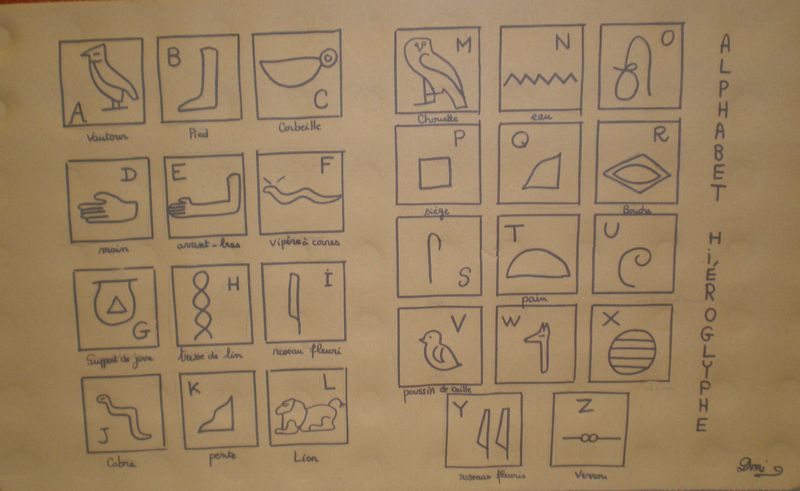 A
Vautour
B
Pied
C
Corbeille
D
main
E
avant-bras
F
Vipère à cornes
G
Support de jarre
H
tresse de lin
I
roseau fleuri
J
Cobra
K
pente
L
Lion
M
Chouette
N
eau
O
P
siège
Q
R
Bouche
S
T
pain
U
V
poussin de caille
W
X
Y
roseaux fleuris
Z
Verrou
ALPHABET HIÉROGLYPHE